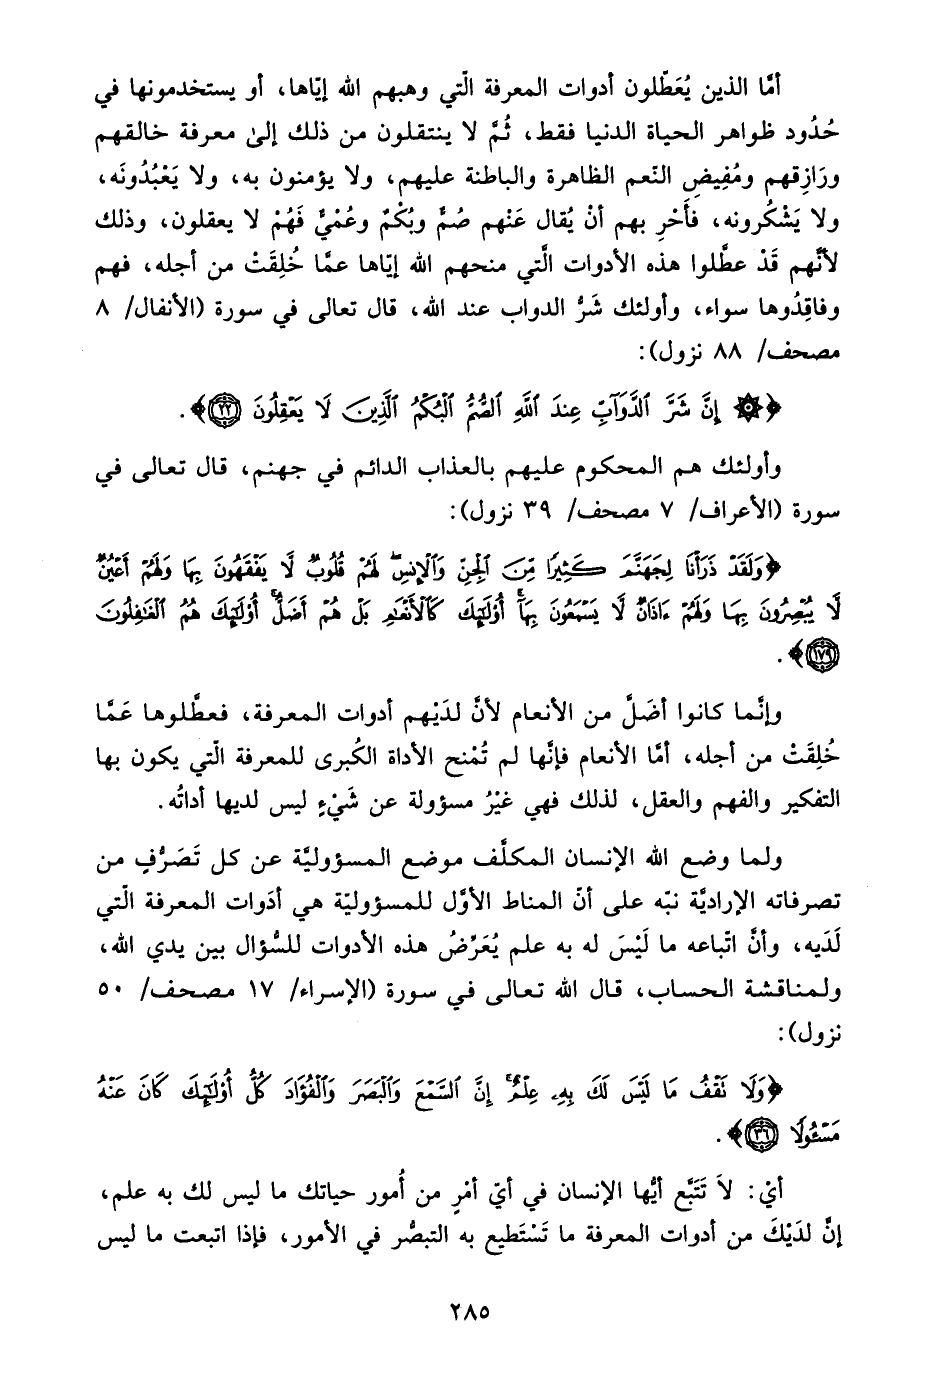 أمَّا الذين يُعَطّلون أدوات المعرفة الّتي وهبهم الله إيّاها، أو يستخدمونها في
حُدُود ظواهر الحياة الدنيا فقط، ثُمَّ لا ينتقلون من ذلك إلىٰ معرفة خالقهم
ورَازِقهم ومُفِيضِ النّعم الظاهرة والباطنة عليهم، ولا يؤمنون به، ولا يَعْبُدُونَه،
ولا يَشْكُرونه، فأَحْرِ بهم أنْ يُقال عَنْهم صُمٌّ وبُكْمٌ وعُمْيٌ فَهُمْ لا يعقلون، وذلك
لأنَّهم قَدْ عطَّلوا هذه الأدوات الَّتي منحهم الله إيّاها عمَّا خُلِقَتْ من أجله، فهم
وفاقِدُوها سواء، وأولئك شَرُّ الدواب عند الله، قال تعالى في سورة (الأنفال/ ٨
مصحف/ ٨٨ نزول):
﴿۞ إِنَّ شَرَّ ٱلدَّوَآبِّ عِندَ ٱللَّهِ ٱلصُّمُّ ٱلْبُكْمُ ٱلَّذِينَ لَا يَعْقِلُونَ ﴿٢٢﴾﴾.
وأولئك هم المحكوم عليهم بالعذاب الدائم في جهنم، قال تعالى في
سورة (الأعراف/ ٧ مصحف/ ٣٩ نزول):
﴿وَلَقَدْ ذَرَأْنَا لِجَهَنَّمَ كَثِيرًا مِّنَ ٱلْجِنِّ وَٱلْإِنسِ ۖ لَهُمْ قُلُوبٌ لَّا يَفْقَهُونَ بِهَا وَلَهُمْ أَعْيُنٌ
لَّا يُبْصِرُونَ بِهَا وَلَهُمْ ءَاذَانٌ لَّا يَسْمَعُونَ بِهَآ ۚ أُوْلَٰٓئِكَ كَٱلْأَنْعَٰمِ بَلْ هُمْ أَضَلُّ ۚ أُوْلَٰٓئِكَ هُمُ ٱلْغَٰفِلُونَ
﴿١٧٩﴾﴾.
وإنَّما كانوا أضَلَّ من الأنعام لأنَّ لدَيْهم أدوات المعرفة، فعطَّلوها عَمَّا
خُلِقَتْ من أجله، أمَّا الأنعام فإنَّها لم تُمْنح الأداة الكُبرى للمعرفة الّتي يكون بها
التفكير والفهم والعقل، لذلك فهي غَيْرُ مسؤولة عن شَيْءٍ ليس لديها أداتُه.
ولما وضع الله الإنسان المكلَّف موضع المسؤوليَّة عن كل تَصَرُّفٍ من
تصرفاته الإراديَّة نبّه على أنّ المناط الأوَّل للمسؤوليّة هي أدَوات المعرفة الّتي
لَدَيه، وأنَّ اتّباعه ما لَيْسَ له به علم يُعَرِّضُ هذه الأدوات للسُّؤال بين يدي الله،
ولمناقشة الحساب، قال الله تعالى في سورة (الإسراء/ ١٧ مصحف/ ٥٠
نزول):
﴿وَلَا تَقْفُ مَا لَيْسَ لَكَ بِهِۦ عِلْمٌ ۚ إِنَّ ٱلسَّمْعَ وَٱلْبَصَرَ وَٱلْفُؤَادَ كُلُّ أُوْلَٰٓئِكَ كَانَ عَنْهُ
مَسْـُٔولًا ﴿٣٦﴾﴾.
أيْ: لاَ تَتَبَّع أيُّها الإنسان في أيّ أمْرٍ من أُمور حياتك ما ليس لك به علم،
إنَّ لدَيْكَ من أدوات المعرفة ما تَسْتَطيع به التبصُّر في الأمور، فإذا اتبعت ما ليس
٢٨٥